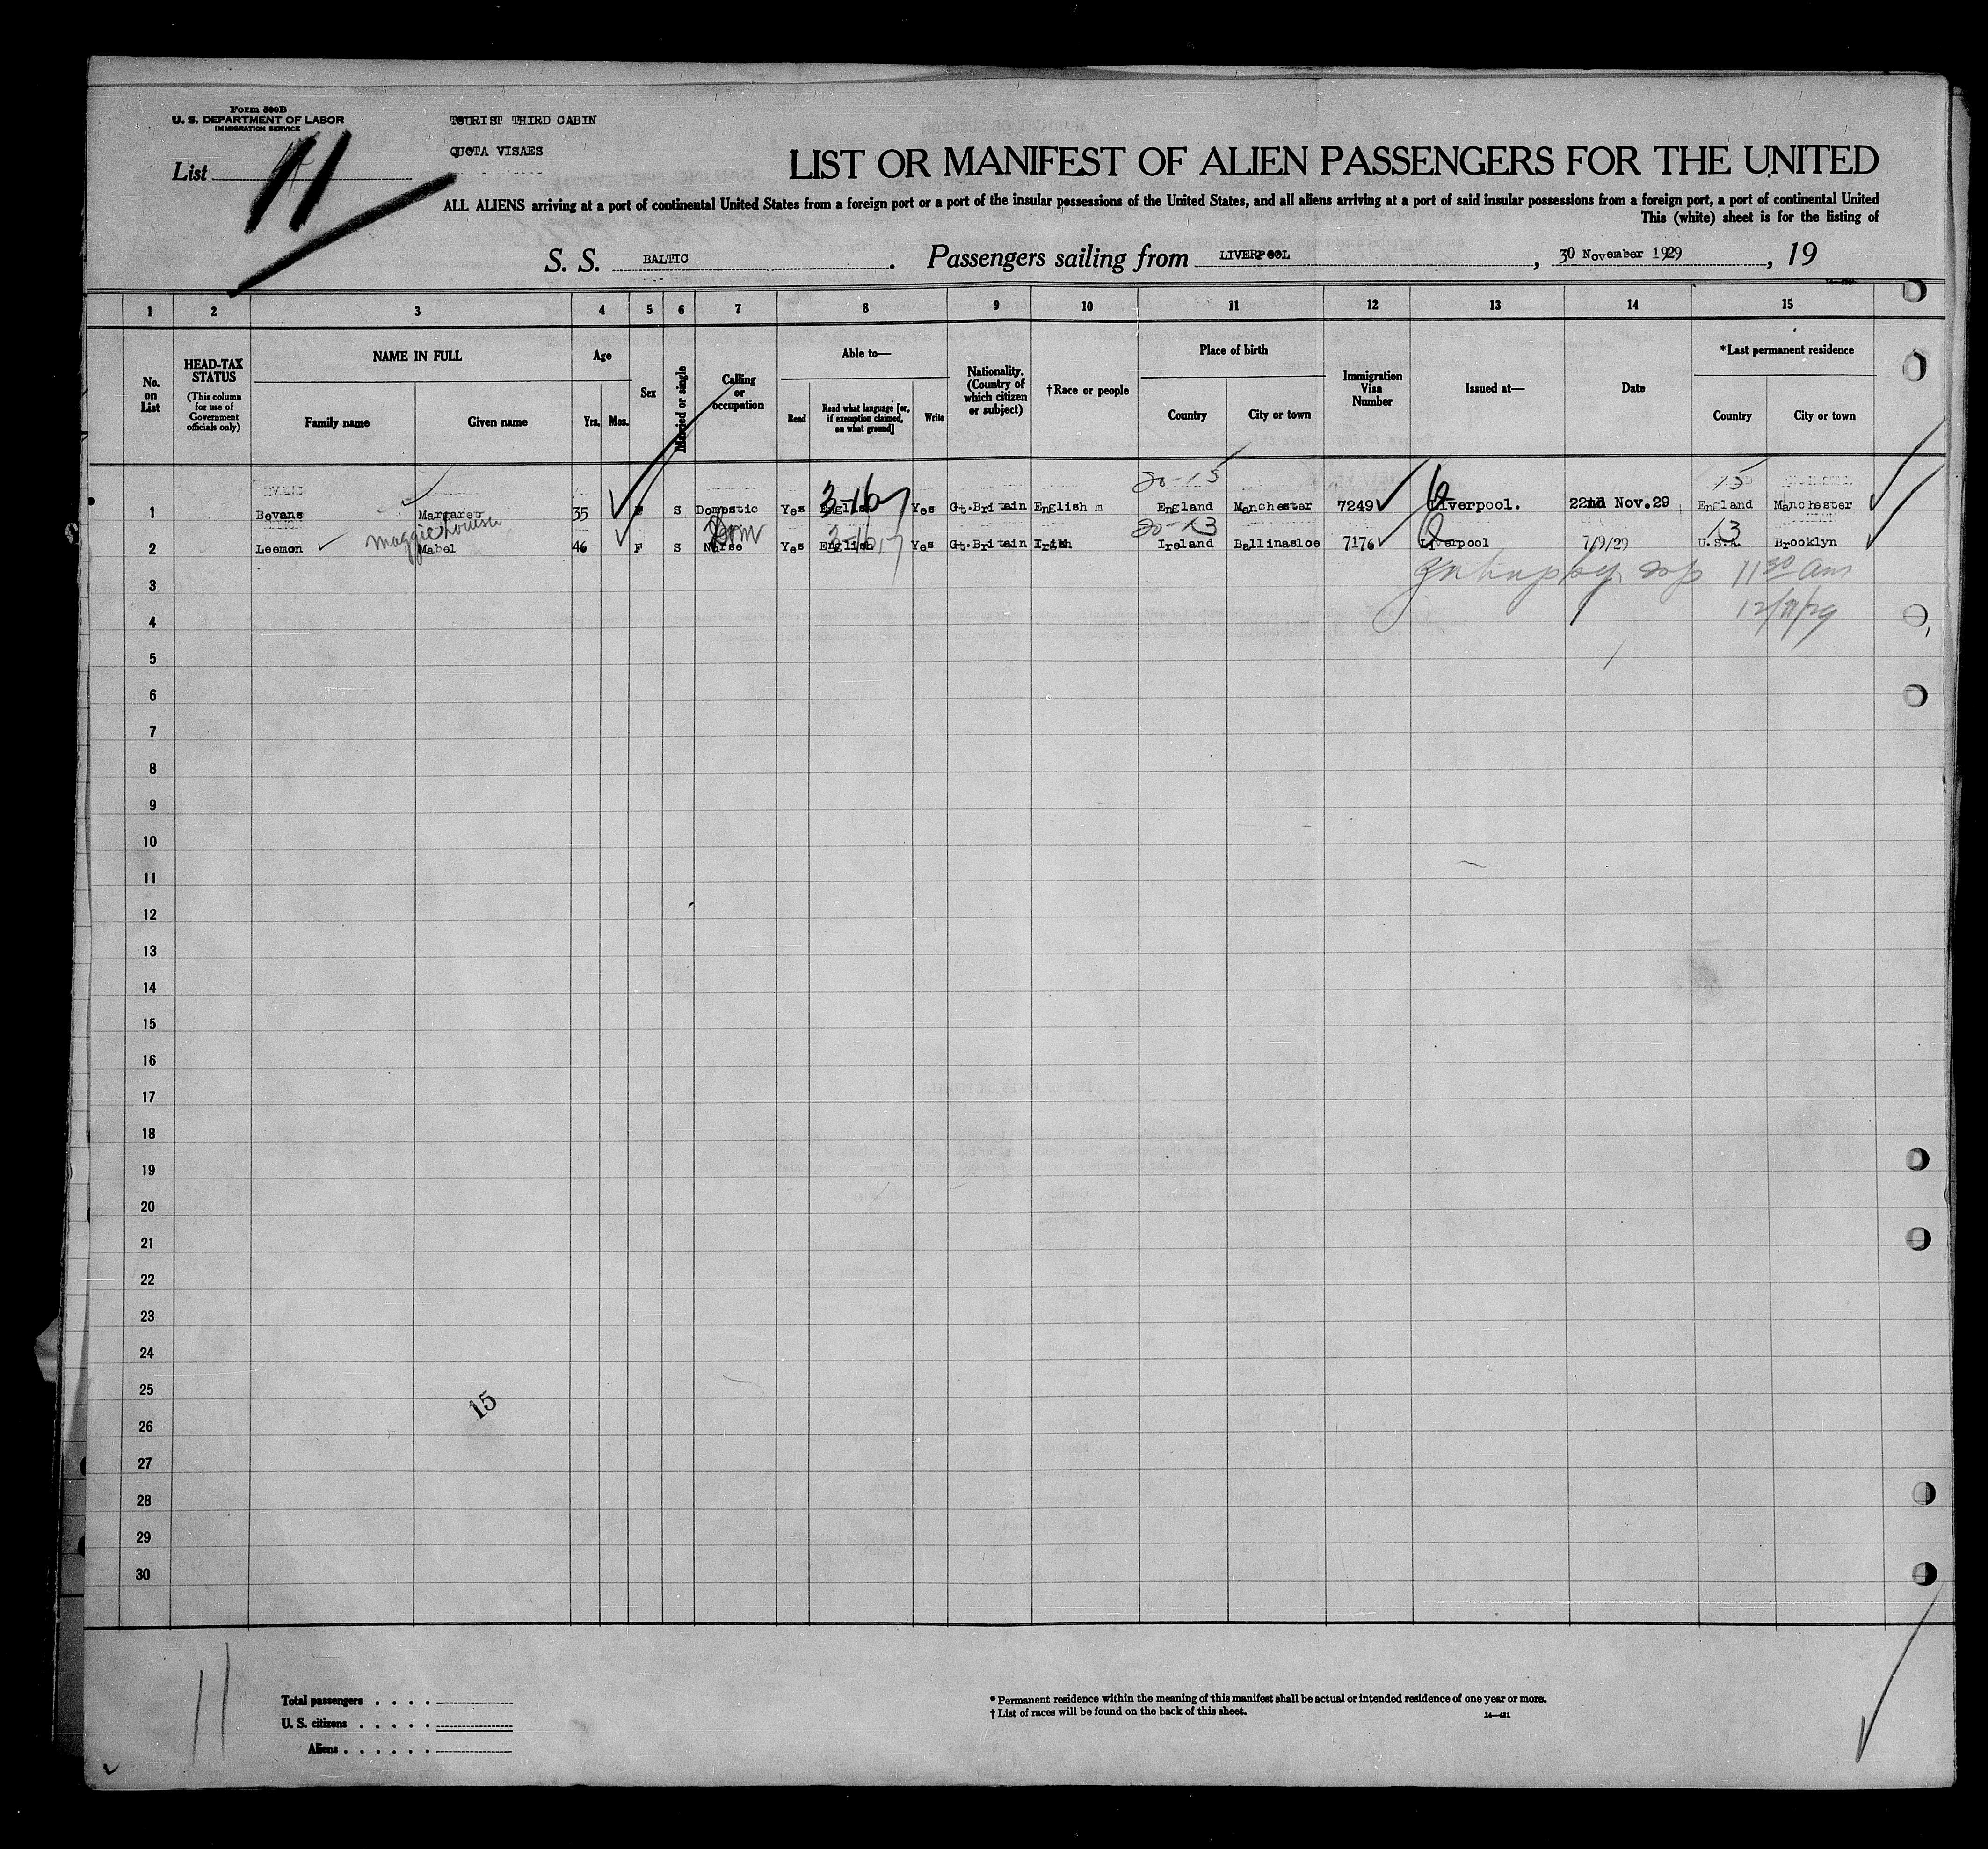 Form 500B
U. S. DEPARTMENT OF LABOR
IMMIGRATION SERVICE
TOURIST THIRD CABIN
QUOTA VISAES
List 11
LIST OR MANIFEST OF ALIEN PASSENGERS FOR THE UNITED
ALL ALIENS arriving at a port of continental United States from a foreign port or a port of the insular possessions of the United States, and all aliens arriving at a port of said insular possessions from a foreign port, a port of continental United
This (white) sheet is for the listing of
S. S. BALTIC . Passengers sailing from LIVERPOOL , 30 November 1929 , 19
1 2 3 4 5 6 7 8 9 10 11 12 13 14 15
No. on List
HEAD-TAX STATUS
(This column for use of Government officials only)
NAME IN FULL
Family name Given name
Age
Yrs. Mos.
Sex
Married or single
Calling or occupation
Able to—
Read Read what language [or, if exemption claimed, on what ground] Write
Nationality. (Country of which citizen or subject)
†Race or people
Place of birth
Country City or town
Immigration Visa Number
Issued at—
Date
*Last permanent residence
Country City or town
20-15 15
1 Bevans Margaret 35 F S Domestic Yes English 3-16 Yes Gt.Britain English England Manchester 7249 Liverpool. 22nd Nov.29 England Manchester
Maggie Louisa Dom 20-13 13
2 Leemon Mabel 46 F S Nurse Yes English Yes Gt.Britain Irish Ireland Ballinasloe 7176 Liverpool 7/9/29 U.S.A. Brooklyn
11 30 am
3
12/9/29
4
5
6
7
8
9
10
11
12
13
14
15
16
17
18
19
20
21
22
23
24
25
15
26
27
28
29
30
11
Total passengers . . . .
U. S. citizens . . . . .
Aliens . . . . . .
* Permanent residence within the meaning of this manifest shall be actual or intended residence of one year or more.
† List of races will be found on the back of this sheet.